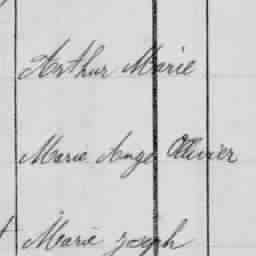 Arthur Marie
Marie Ange Ollivier
Marie joseph